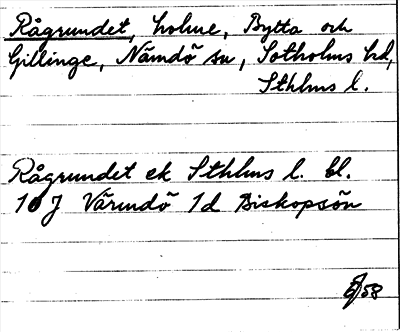 Rågrundet, holme, Bytta och
Gillinge, Nämdö sn, Sotholms hd,
Sthlms l.
Rågrundet ek Sthlms l. bl.
10J Värmdö 1d Biskopsön
58